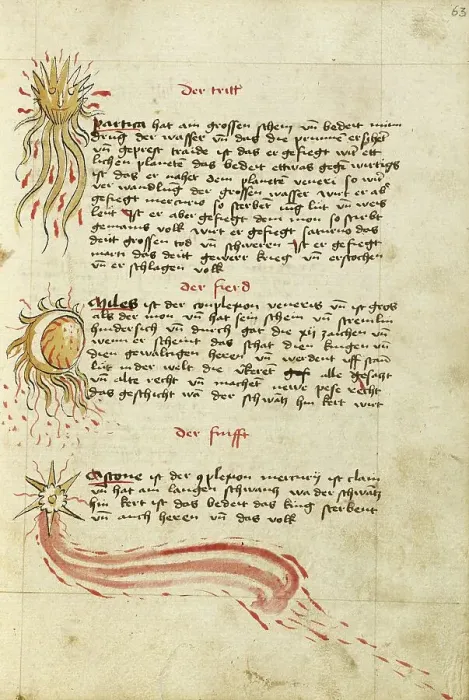 63
der tritt
Partica hat am grossen schein vñ bedeit minn
drug der wasser vñ das die prunnen ersihet
vñ geprest traide ist das er gefiegt wirt ett
lichen planetẽ das bedeit ettwas gegẽ wirtigs
ist das er naher dem planetẽ veneri so wirt
ver wandlung der grossen wasser wirt er ab
gefiegt mercurio so sterbent iung lüt vñ weis
leüt Ist er aber gefiegt dem mon so stirbt
gemains volk wirt er gefiegt saturno das
deitt grossen tod vñ schweren Ist er gefiegt
marti das deitt gewerr krieg vñ erstochen
vñ er schlagen volk
der fierd
Miles ist der conplexion veneris vñ ist gros
als der mon vñ hat sein schein vñ streimlin
hindersich vñ durch gat die xij zaichen vñ
wenn er scheint das schat dien kingen vñ
dien gewaltigen heren vñ werdent uff stan
lüt in der welt die ükeret alle gesatzt
vñ alte recht vñ machet newe pese recht
das geschicht wa der schwãtz hin kert wirt
der funfft
Ascone ist der 9plexion mercurij ist clain
vñ hat am langen schwantz wa der schwãtz
hin kert ist das bedeit das king sterbent
vñ auch heren vñ das volk